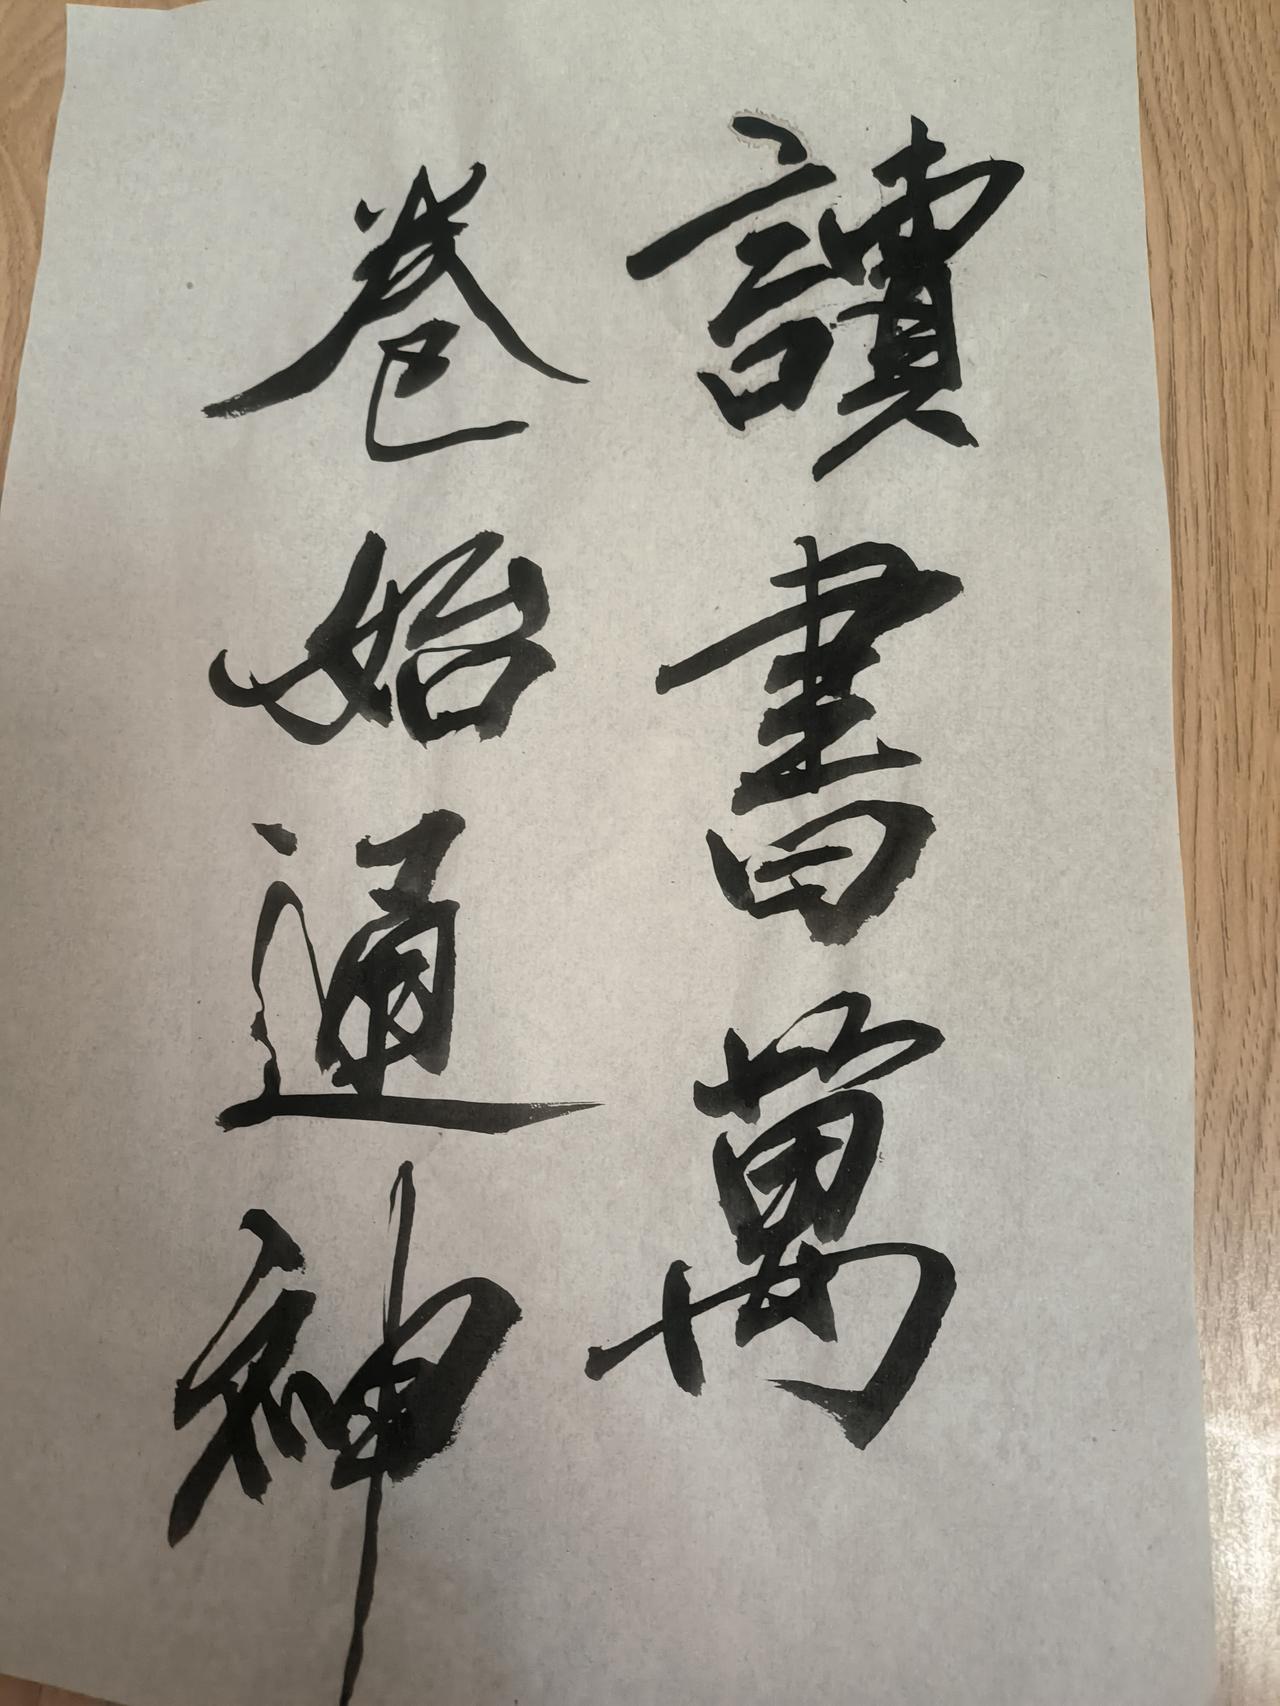 讀書萬
卷始通神